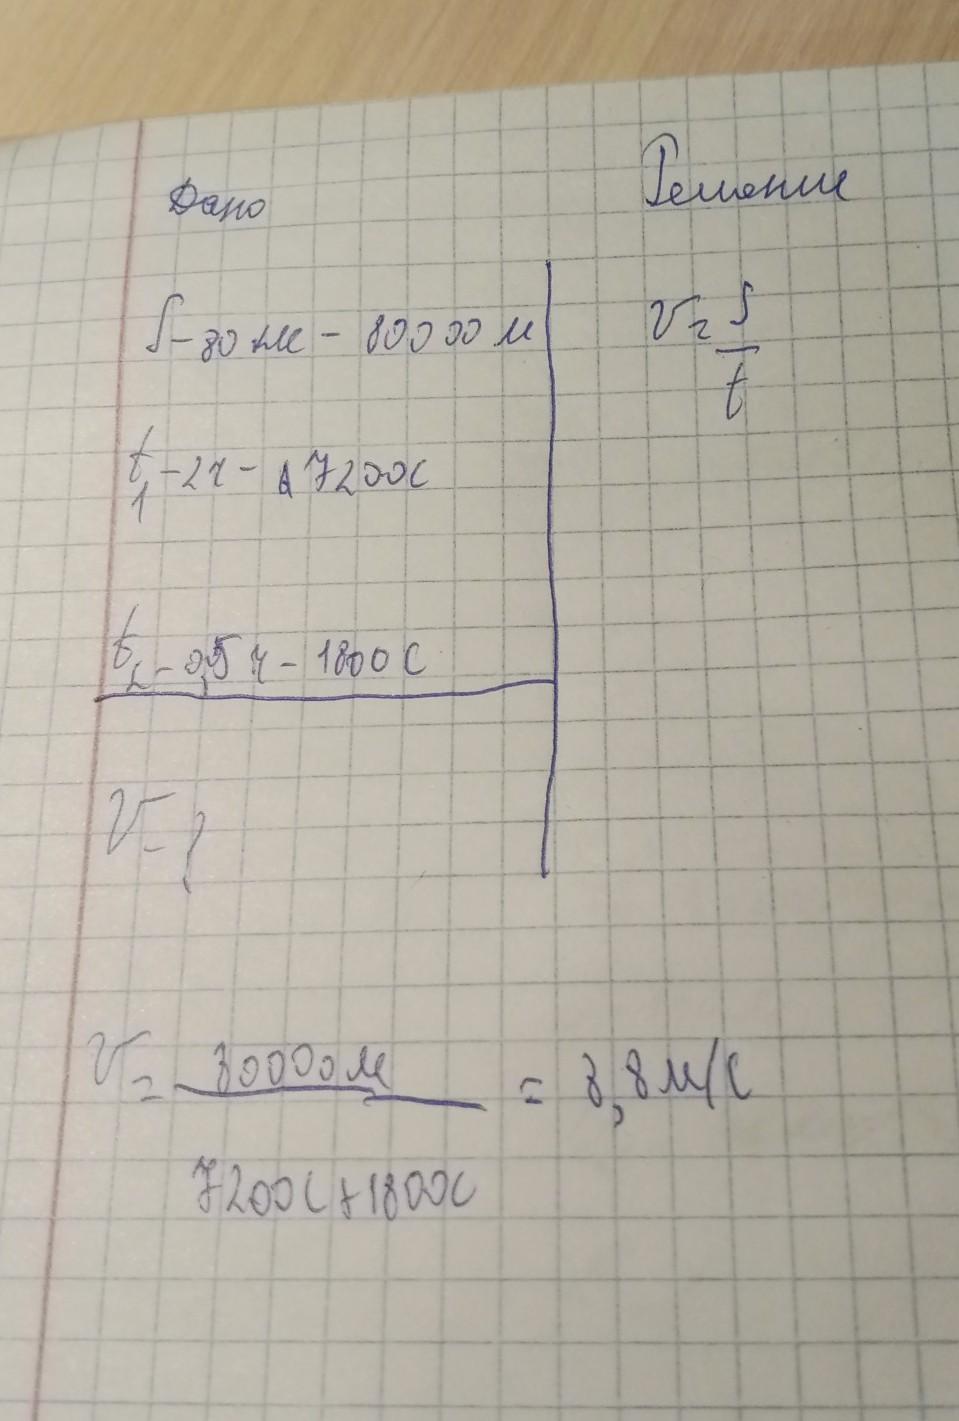 Дано
Решение
S - 80 км - 80000 м
V = S/t
t1 - 2ч - 7200с
t2 - 0,5 ч - 1800 с
V - ?
V = 80000м / 7200с + 1800с = 8,8 м/с